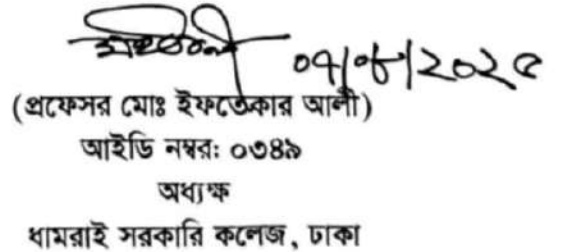 ০৭/০৮/২০২৫
(প্রফেসর মোঃ ইফতেকার আলী)
আইডি নম্বর: ০৩৪৯
অধ্যক্ষ
ধামরাই সরকারি কলেজ, ঢাকা